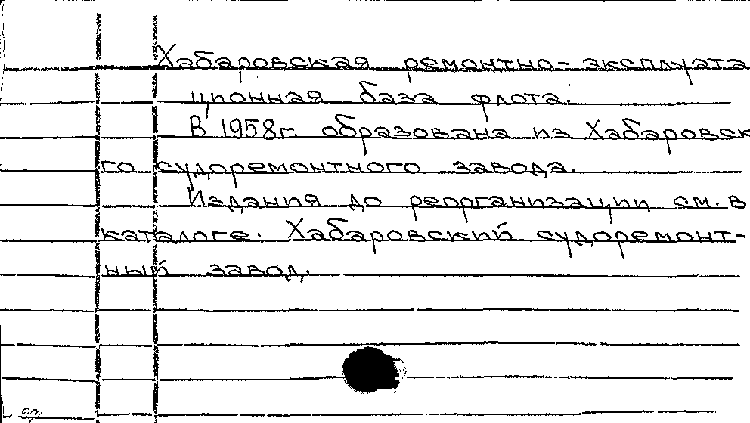 Хабаровская ремонтно-эксплуата
ционная база флота.
В 1958г. образована из Хабаровск
го судоремонтного завода.
Издания до реорганизации см. в
каталоге: Хабаровский судоремонт-
ный завод.